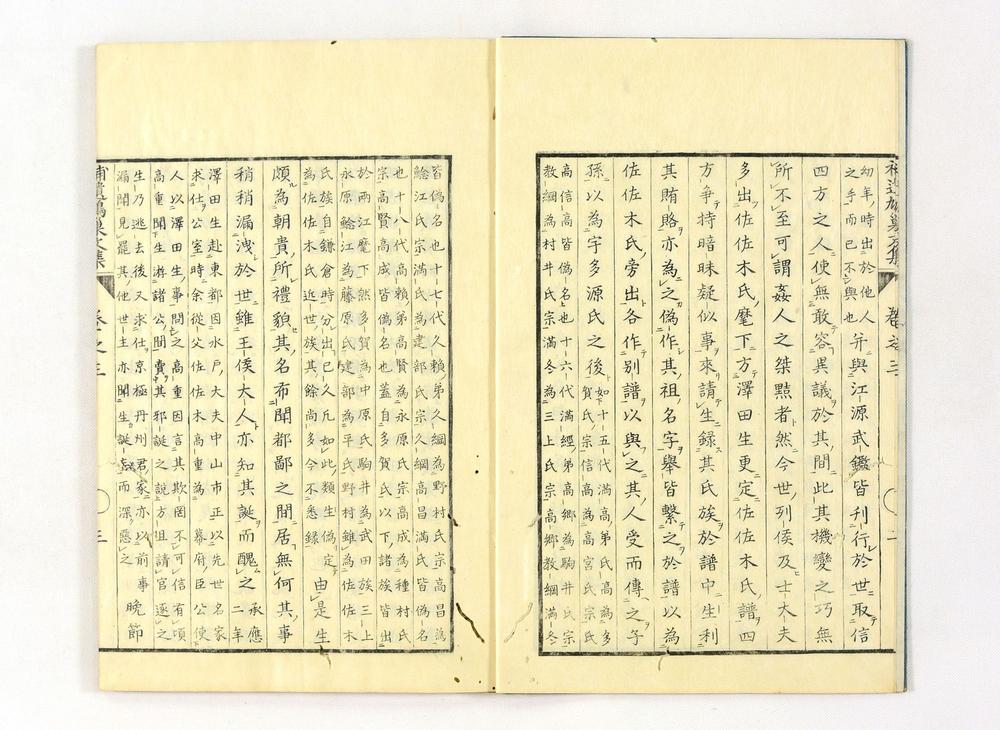 補遺鳩巢文集 卷之三 二
幼年時出於他人
之手而已不與也
并與江源武鑑皆刊行於世取信
四方之人使無敢容異議於其間此其機變之巧無
所不至可謂姦人之桀黠者然今世列侯及士大夫
多出佐佐木氏麾下方澤田生更定佐佐木氏譜四
方爭持暗昧疑似事來請生錄其氏族於譜中生利
其賄賂亦為之偽作其祖名字舉皆繫之於譜以為
佐佐木氏旁出各作別譜以與之其人受而傳之子
孫以為宇多源氏之後
如十五代滿高弟氏高為多
賀氏宗信高為高宮氏宗氏
高信高皆偽名也十六代滿經弟高鄉為駒井氏宗
教綱為村井氏宗滿冬為三上氏宗高鄉教綱滿冬
皆偽名也十七代久賴弟久綱為野村氏宗高昌為
鯰江氏宗滿氏為建部氏宗久綱高昌滿氏皆偽名
也十八代高賴弟高賢為永原氏宗高成為種村氏
宗高賢高成皆偽名也蓋自多賀氏以下諸族皆出
於兩江麾下然多賀為中原氏駒井為武田族三上
永原鯰江為藤原氏建部為平氏野村雖為佐佐木
氏族自鎌倉時分出已久凡如此類生偽定
為佐佐木氏近世族其餘尚多今不悉錄
由是生
頗為朝貴所禮貌其名布聞都鄙之間居無何其事
稍稍漏洩於世雖王侯大人亦知其誕而醜之
承應
二年
澤田生赴東都因水戶大夫中山市正以先世名家
求仕公室時余從父佐佐木高重為幕府臣公使
人以澤田生事問之高重因言其欺罔不可信有頃
高重聞生游諸公間賣其邪誕之說方俱請官逐之
生乃逃去後又求仕京極丹州君家亦以前事
漏聞見罷其他世主亦聞生誕妄而深惡之
晚節
補遺鳩巢文集 卷之三 三